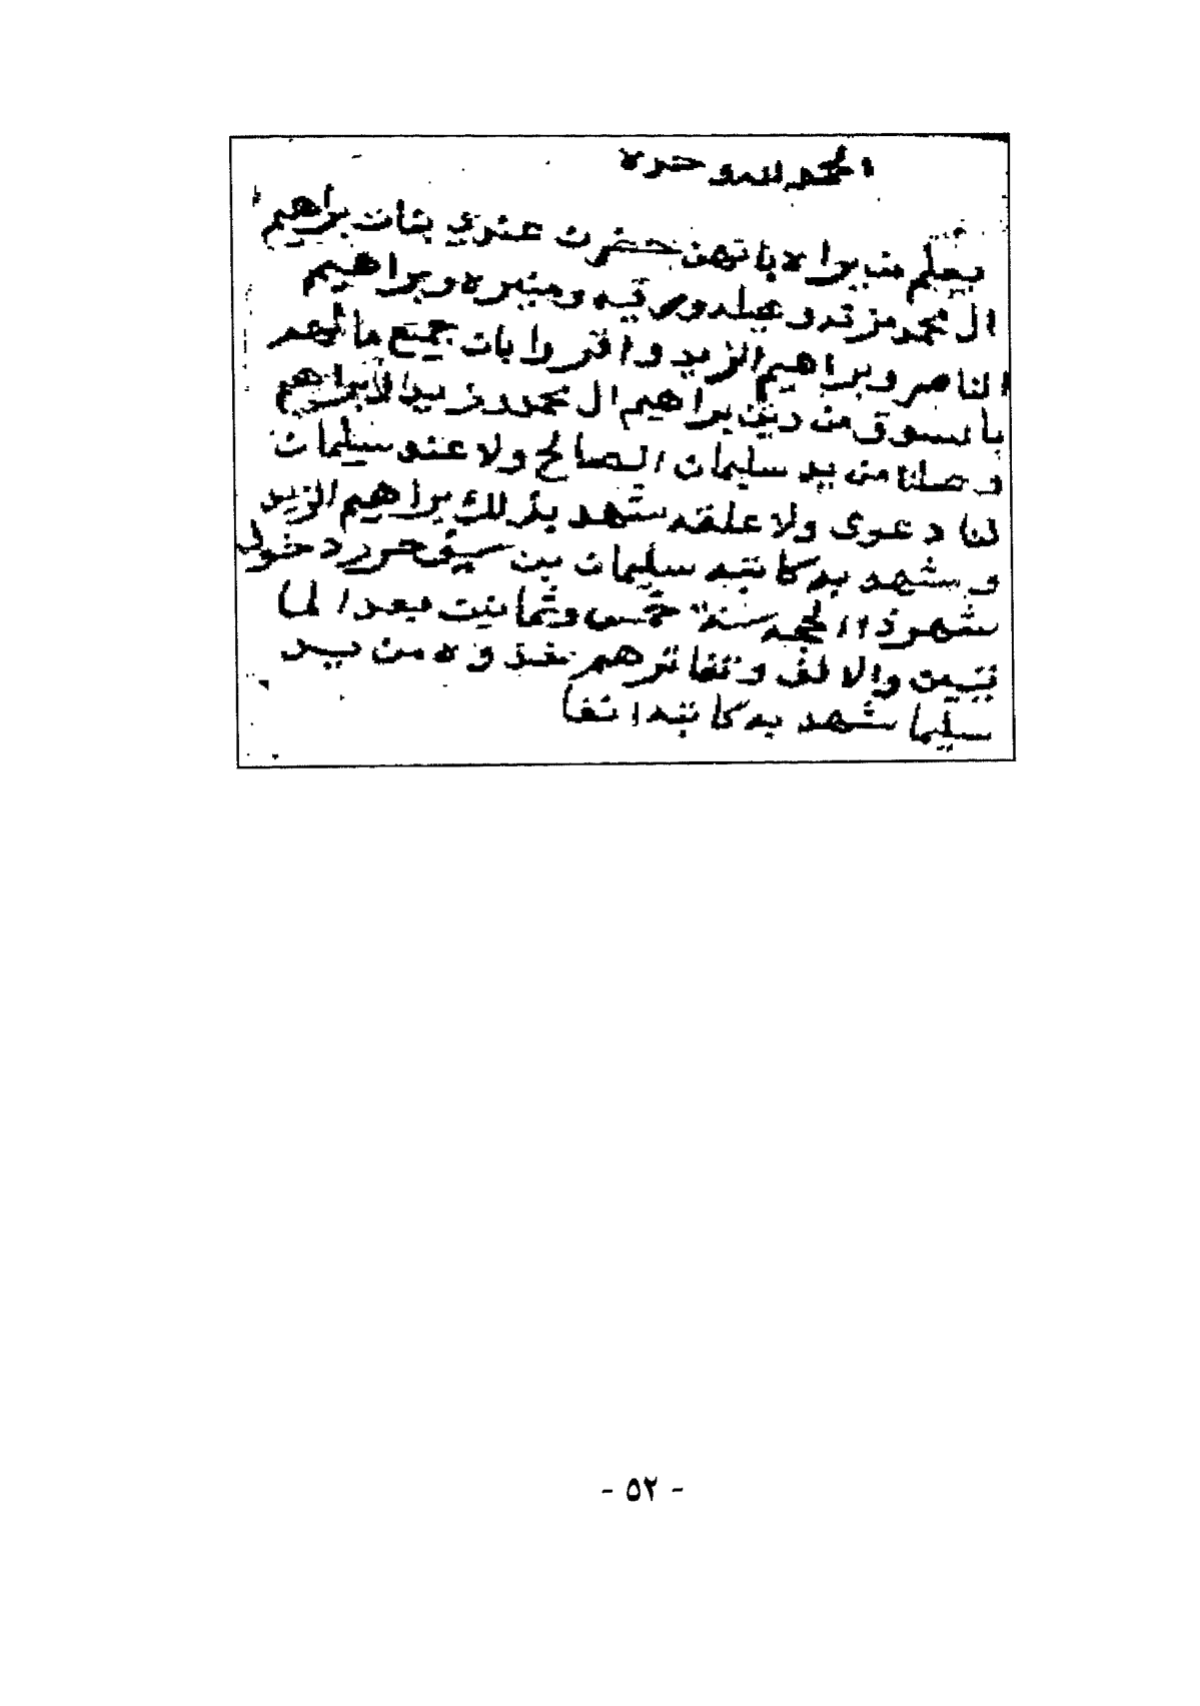 الحمد لله وحده
يعلم من يراه باتهن حضرن عندي بنات براهيم
ال محمد مزنه و عيله ورقيه ومنيره وبراهيم
الناصر وبراهيم الزيد واقروا بان جميع مالهم
بالسوق من دين براهيم ال محمد
وصلنا من يد سليمان الصالح ولا عند سليمان
لنا دعوى ولا علقه شهد بذلك براهيم الزيد
و شهد به كاتبه سليمان بن سيف حرر دخول
شهر ذا الحجه سنة خمس وثمانين بعد الما
تين والالف و هم من يد
سليما شهد به كاتبه
- ٥٢ -